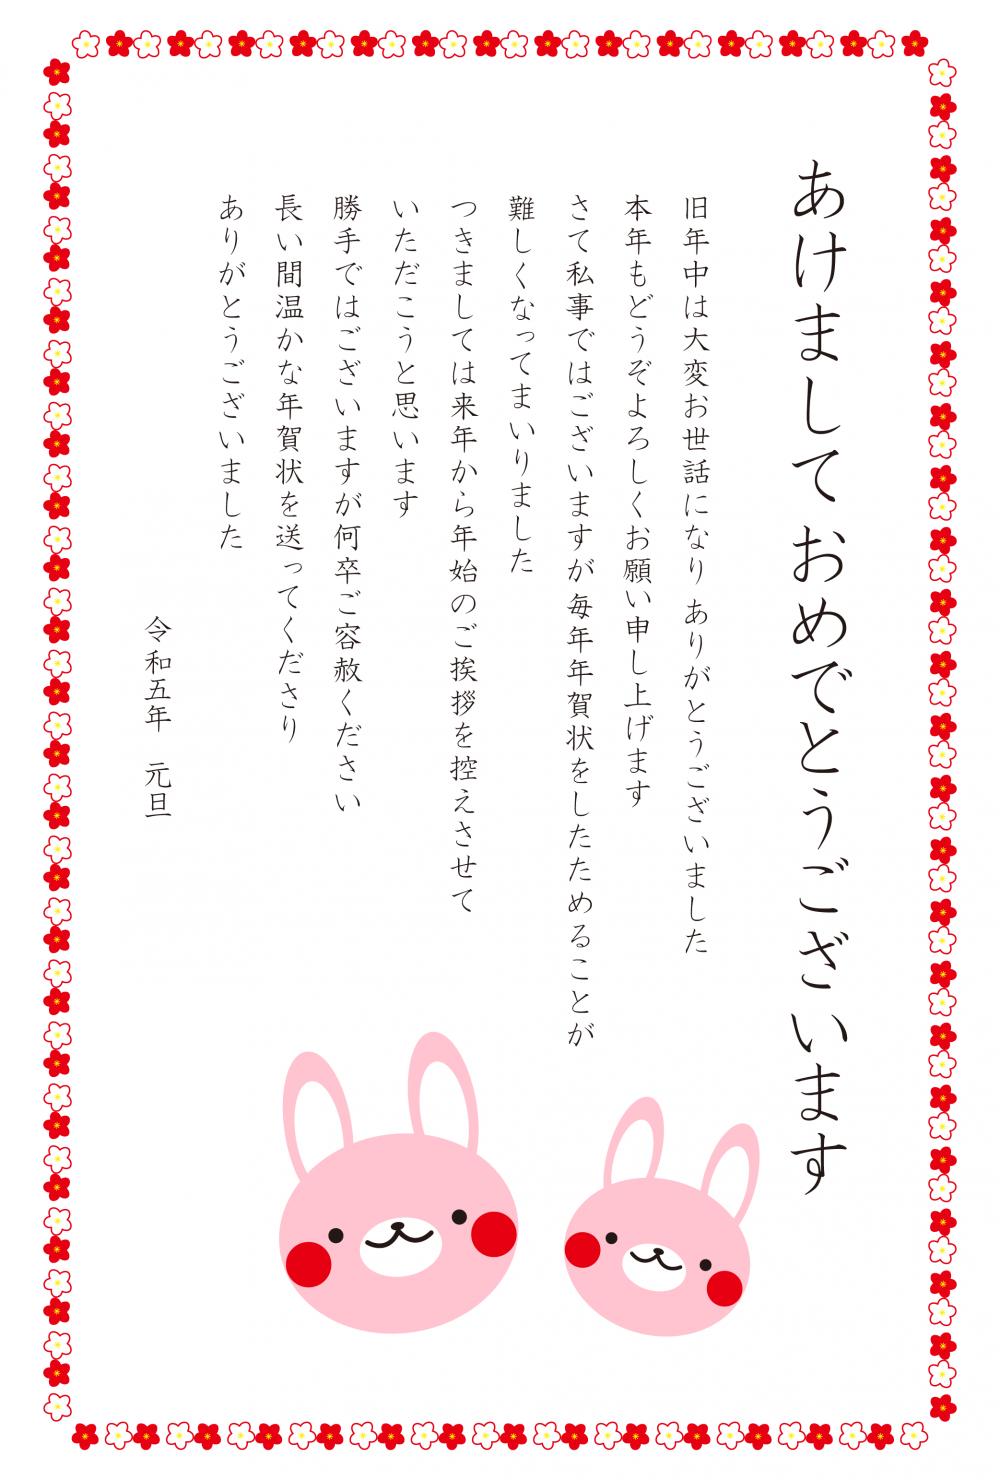 あけましておめでとうございます
旧年中は大変お世話になり ありがとうございました
本年もどうぞよろしくお願い申し上げます
さて私事ではございますが 毎年年賀状をしたためることが
難しくなってまいりました
つきましては来年から年始のご挨拶を控えさせて
いただこうと思います
勝手ではございますが何卒ご容赦ください
長い間温かな年賀状を送ってくださり
ありがとうございました
令和五年 元旦